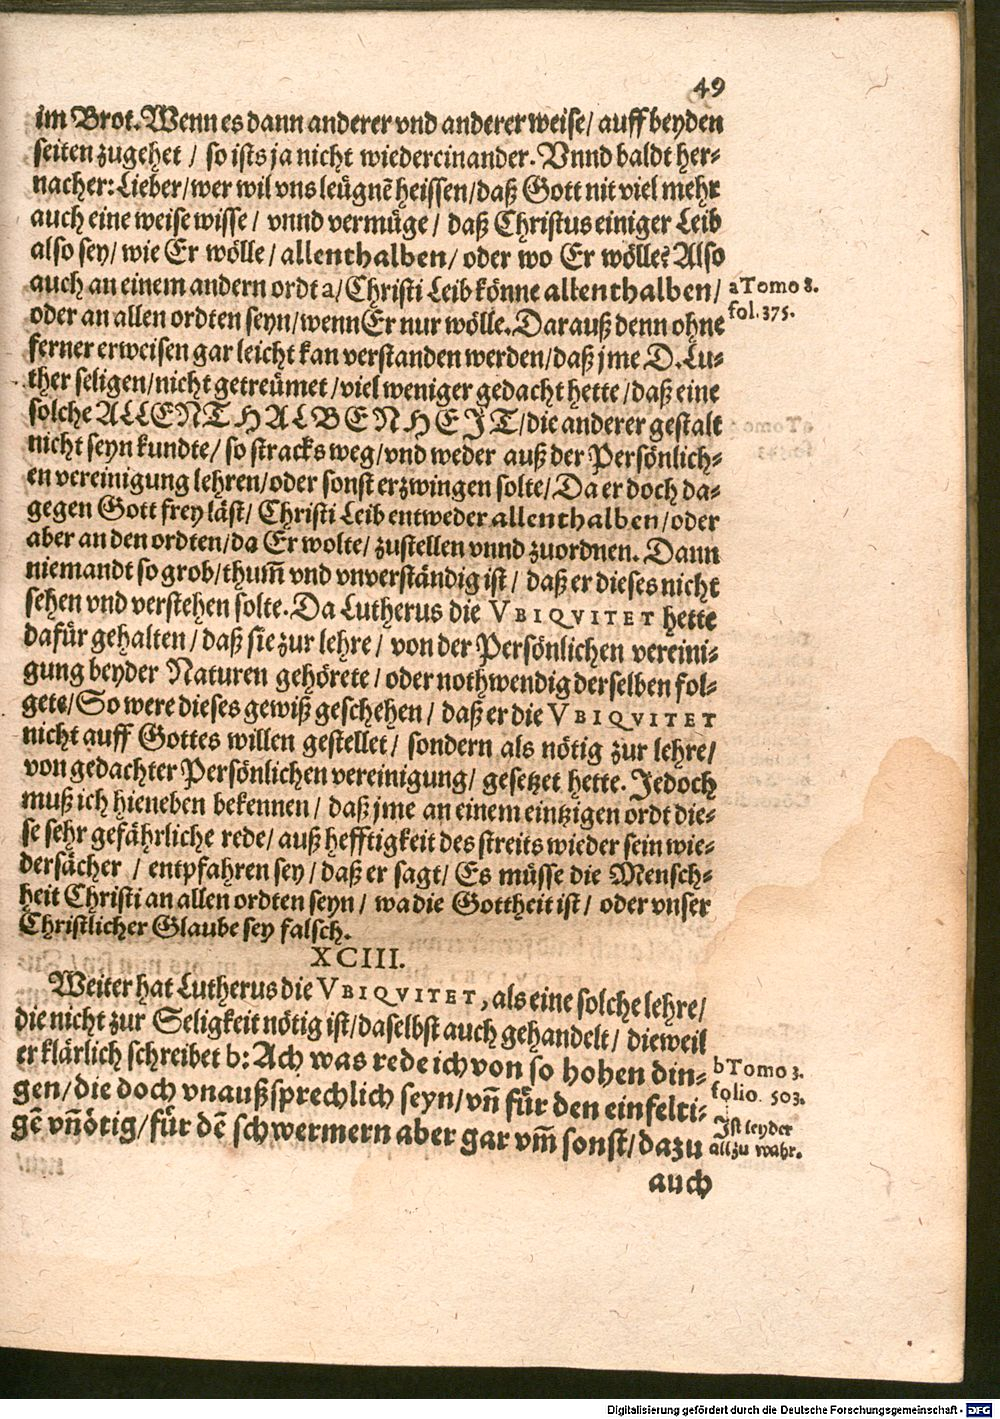 49
im Brot. Wenn es dann anderer vnd anderer weise/ auff beyden
seiten zugehet / so ists ja nicht wiedereinander. Vnnd baldt her-
nacher: Lieber/ wer wil vns leügnē heissen/ daß Gott nit viel mehr
auch eine weise wisse/ vnnd vermüge/ daß Christus einiger Leib
also sey/ wie Er wölle/ allenthalben/ oder wo Er wölle? Also
auch an einem andern ordt a/ Christi Leib könne allenthalben/
a Tomo 8.
fol. 375.
oder an allen ordten seyn/ wenn Er nur wölle. Darauß denn ohne
ferner erweisen gar leicht kan verstanden werden/ daß jme D. Lu-
ther seligen/ nicht getreümet/ viel weniger gedacht hette/ daß eine
solche ALLENTHALBENHEJT/ die anderer gestalt
nicht seyn kundte/ so stracks weg/ vnd weder auß der Persönlich-
en vereinigung lehren/ oder sonst erzwingen solte/ Da er doch da-
gegen Gott frey läst/ Christi Leib entweder allenthalben/ oder
aber an den ordten/ da Er wolte/ zustellen vnnd zuordnen. Dann
niemandt so grob/ thum̄ vnd vnverständig ist/ daß er dieses nicht
sehen vnd verstehen solte. Da Lutherus die VBIQVITET hette
dafür gehalten/ daß sie zur lehre/ von der Persönlichen vereini-
gung beyder Naturen gehörete/ oder nothwendig derselben fol-
gete/ So were dieses gewiß geschehen/ daß er die VBIQVITET
nicht auff Gottes willen gestellet/ sondern als nötig zur lehre/
von gedachter Persönlichen vereinigung/ gesetzet hette. Jedoch
muß ich hieneben bekennen/ daß jme an einem eintzigen ordt die-
se sehr gefährliche rede/ auß hefftigkeit des streits wieder sein wie-
dersächer / entpfahren sey/ daß er sagt/ Es müsse die Mensch-
heit Christi an allen ordten seyn/ wa die Gottheit ist/ oder vnser
Christlicher Glaube sey falsch.
XCIII.
Weiter hat Lutherus die VBIQVITET, als eine solche lehre/
die nicht zur Seligkeit nötig ist/ daselbst auch gehandelt/ dieweil
er klärlich schreibet b: Ach was rede ich von so hohen din-
b Tomo 3.
folio. 503.
gen/ die doch vnaußsprechlich seyn/ vn̄ für den einfelti-
gē vn̄ötig/ für dē schwermern aber gar vm̄ sonst/ dazu
Ist leyder
allzu wahr.
auch
Digitalisierung gefördert durch die Deutsche Forschungsgemeinschaft - DFG